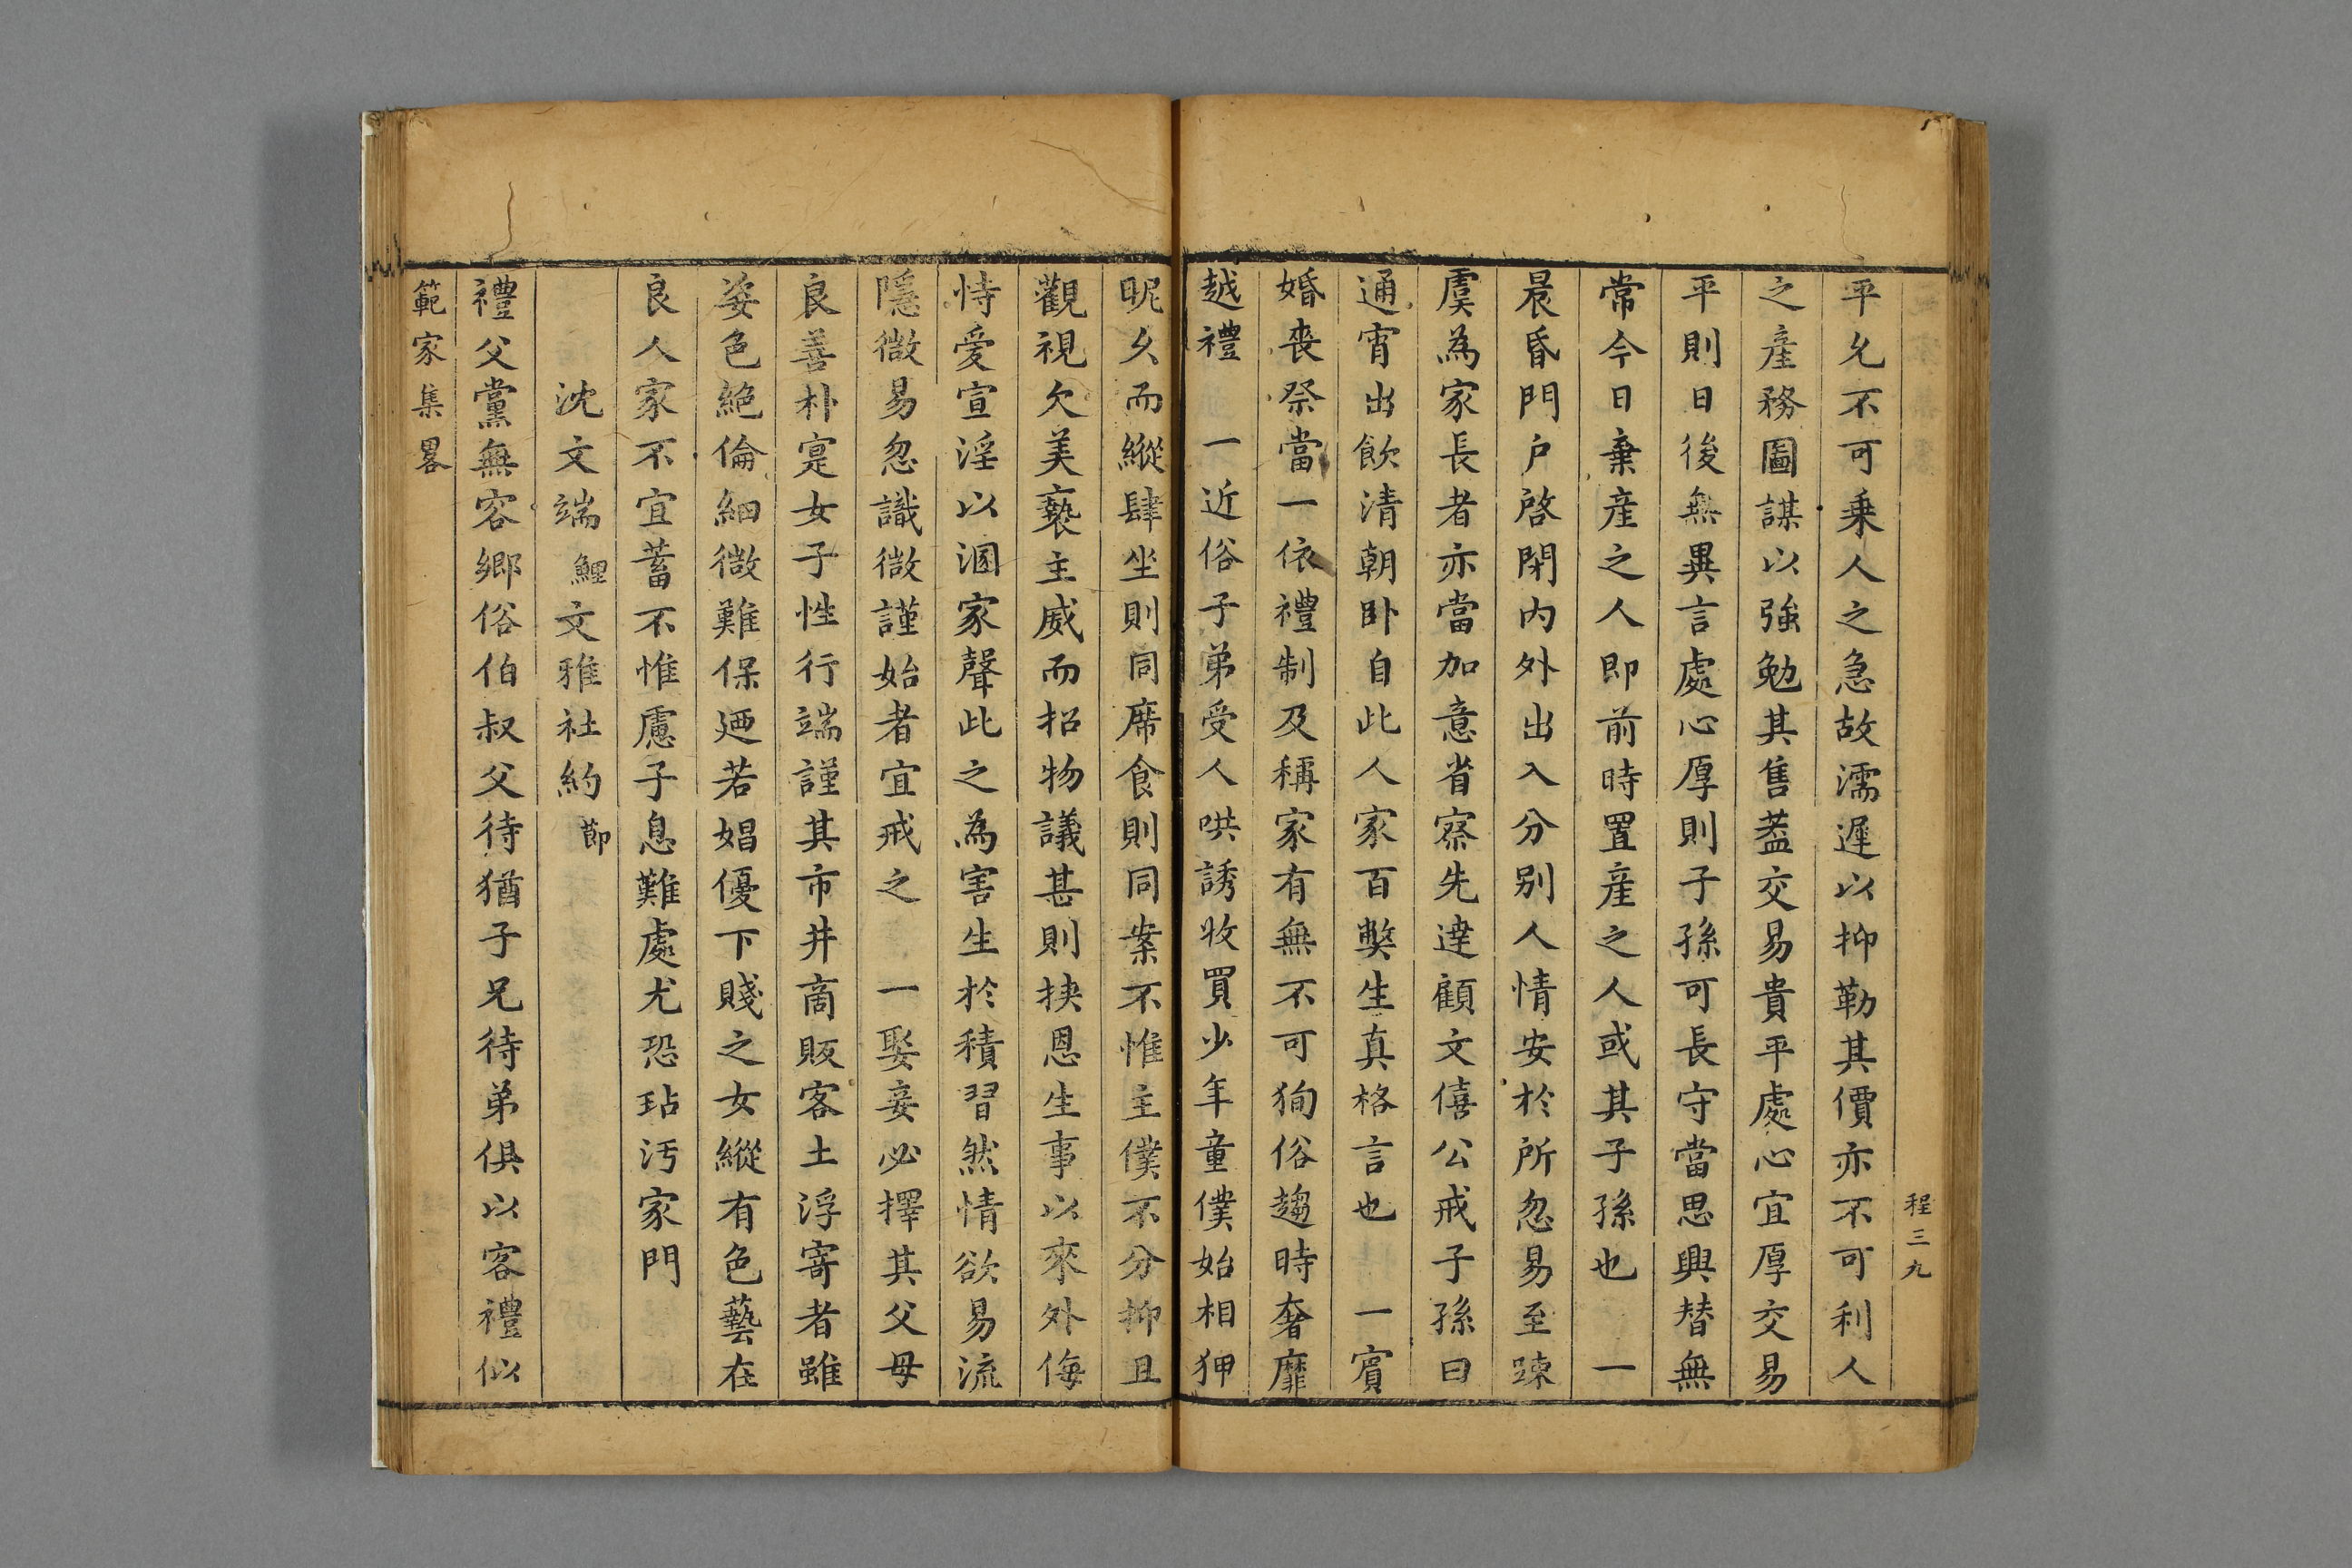 程三九
平允不可乗人之急故濡遲以抑勒其價亦不可利人
之産務圖謀以強勉其售葢交易貴平處心宜厚交易
平則日後無異言處心厚則子孫可長守當思興替無
常今日棄産之人即前時置産之人或其子孫也　一
晨昏門户啓閉内外出入分别人情安於所忽易至踈
虞為家長者亦當加意省察先達顧文僖公戒子孫曰
通宵出飲清朝卧自此人家百獘生真格言也　一賔
婚喪祭當一依禮制及稱家有無不可狥俗趨時奢靡
越禮　一近俗子弟受人哄誘收買少年童僕始相狎
昵久而縱肆坐則同席食則同案不惟主僕不分抑且
觀視欠美褻主威而招物議甚則挟恩生事以來外侮
恃愛宣淫以溷家聲此之為害生於積習然情欲易流
隱微易忽識微謹始者宜戒之　一娶妾必擇其父母
良善朴寔女子性行端謹其市井商販客土浮寄者雖
姿色絶倫細微難保廼若娼優下賤之女縱有色藝在
良人家不宜蓄不惟慮子息難處尤恐玷污家門
沈文端鯉文雅社約節
禮父黨無容鄉俗伯叔父待猶子兄待弟俱以客禮似
範家集畧